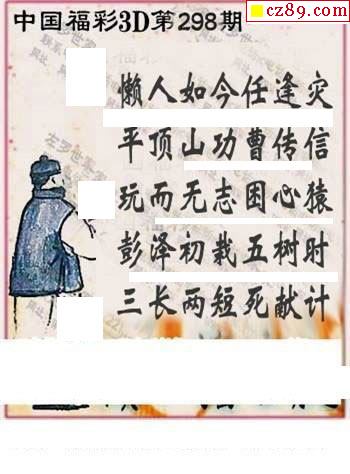 cz89.com
中国福彩3D第298期
懒人如今任逢灾
平顶山功曹传信
玩而无志困心猿
彭泽初栽五树时
三长两短死献计